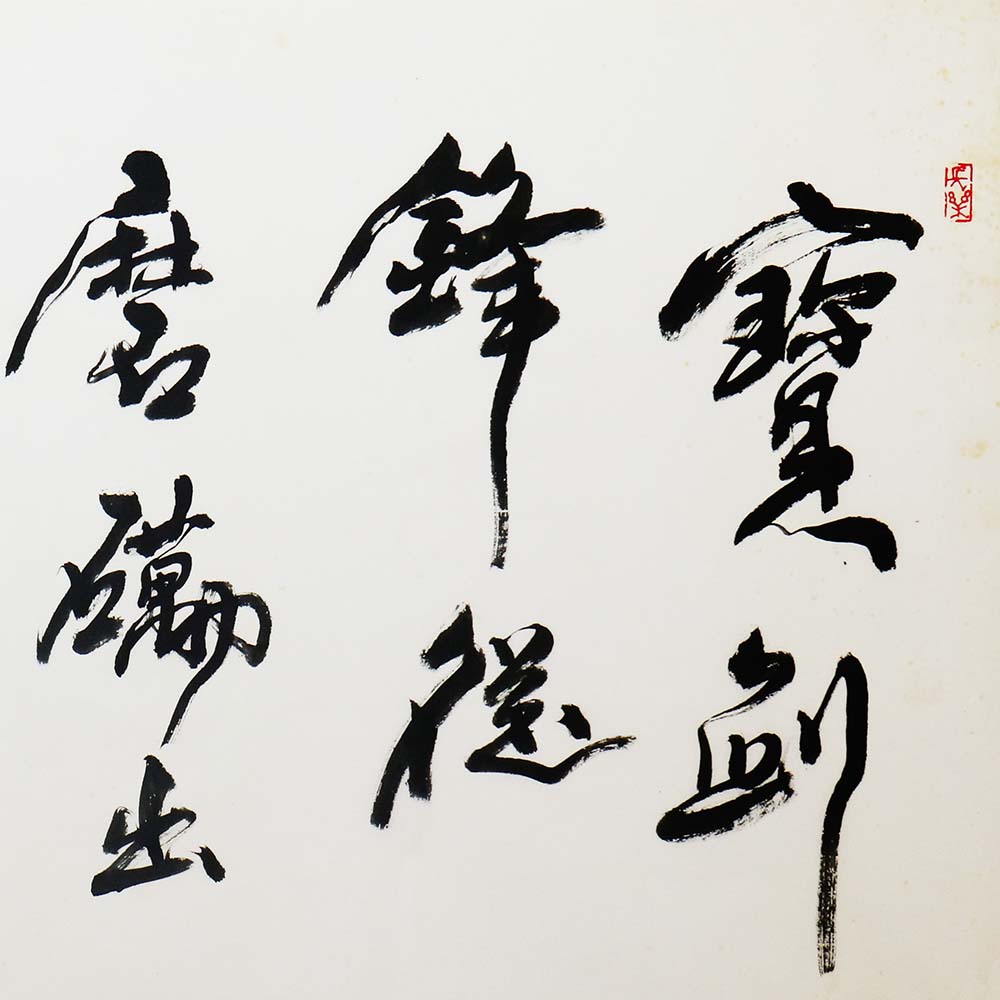 寶劍
鋒從
磨礪出